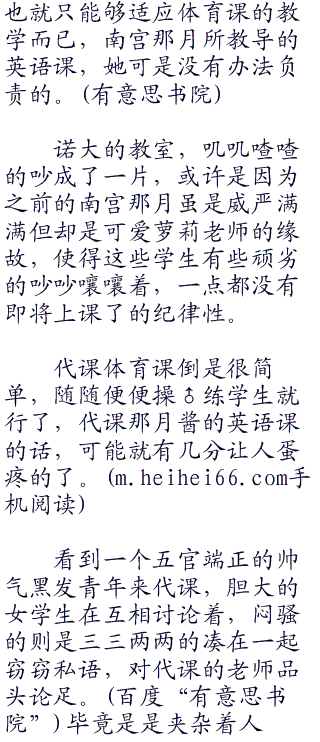 也就只能够适应体育课的教
学而已，南宫那月所教导的
英语课，她可是没有办法负
责的。(有意思书院)
诺大的教室，叽叽喳喳
的吵成了一片，或许是因为
之前的南宫那月虽是威严满
满但却是可爱萝莉老师的缘
故，使得这些学生有些顽劣
的吵吵嚷嚷着，一点都没有
即将上课了的纪律性。
代课体育课倒是很简
单，随随便便操♂练学生就
行了，代课那月酱的英语课
的话，可能就有几分让人蛋
疼的了。(m.heihei66.com手
机阅读)
看到一个五官端正的帅
气黑发青年来代课，胆大的
女学生在互相讨论着，闷骚
的则是三三两两的凑在一起
窃窃私语，对代课的老师品
头论足。(百度“有意思书
院”)毕竟是是夹杂着人